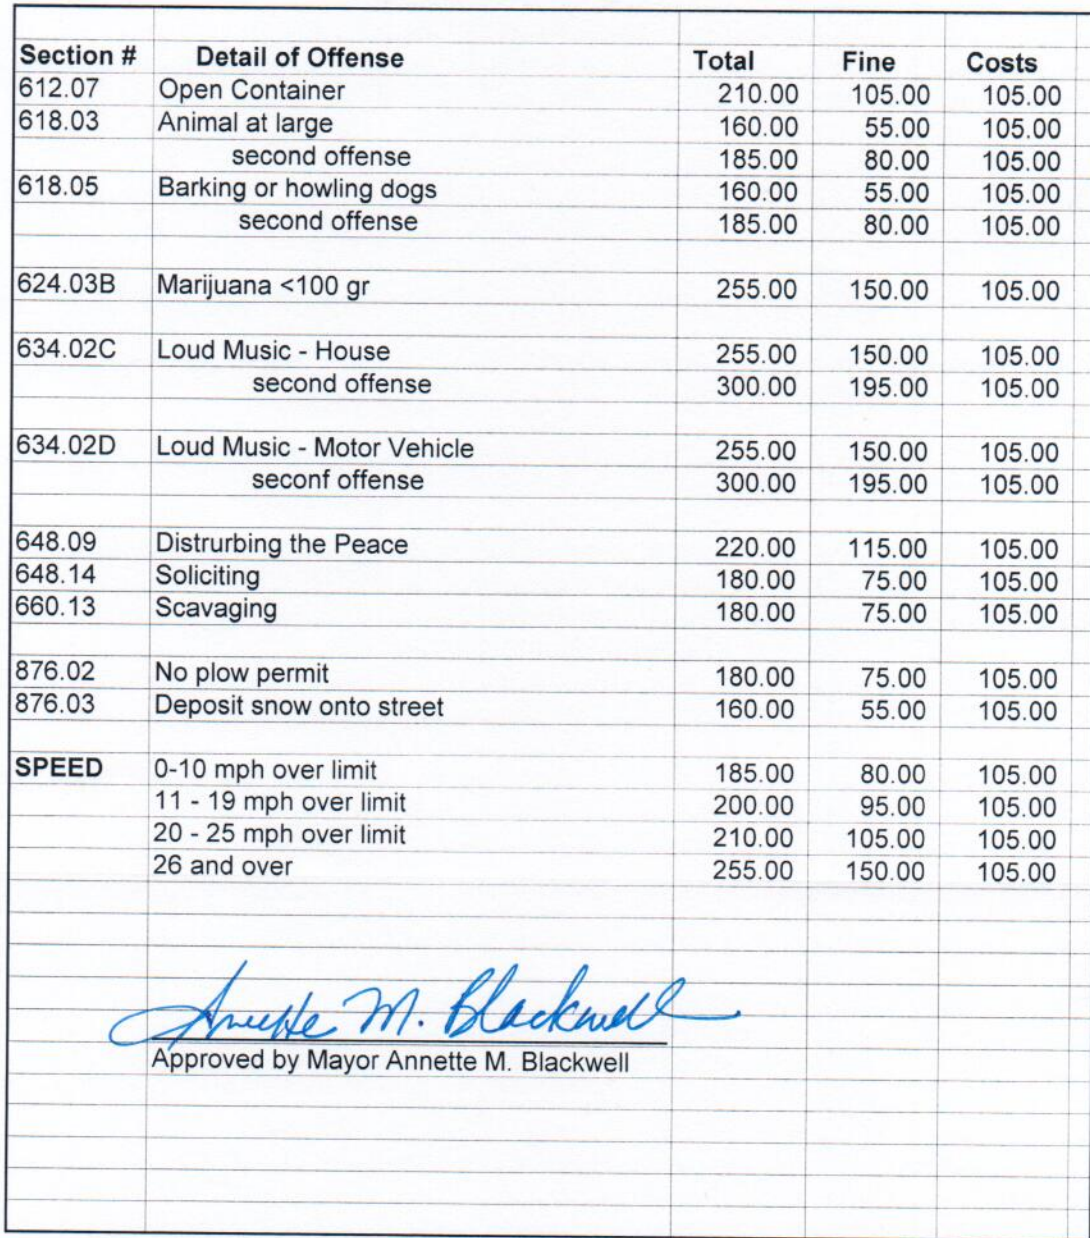 Section # Detail of Offense Total Fine Costs
612.07 Open Container 210.00 105.00 105.00
618.03 Animal at large 160.00 55.00 105.00
second offense 185.00 80.00 105.00
618.05 Barking or howling dogs 160.00 55.00 105.00
second offense 185.00 80.00 105.00
624.03B Marijuana <100 gr 255.00 150.00 105.00
634.02C Loud Music - House 255.00 150.00 105.00
second offense 300.00 195.00 105.00
634.02D Loud Music - Motor Vehicle 255.00 150.00 105.00
seconf offense 300.00 195.00 105.00
648.09 Distrurbing the Peace 220.00 115.00 105.00
648.14 Soliciting 180.00 75.00 105.00
660.13 Scavaging 180.00 75.00 105.00
876.02 No plow permit 180.00 75.00 105.00
876.03 Deposit snow onto street 160.00 55.00 105.00
SPEED 0-10 mph over limit 185.00 80.00 105.00
11 - 19 mph over limit 200.00 95.00 105.00
20 - 25 mph over limit 210.00 105.00 105.00
26 and over 255.00 150.00 105.00
Annette M. Blackwell
Approved by Mayor Annette M. Blackwell